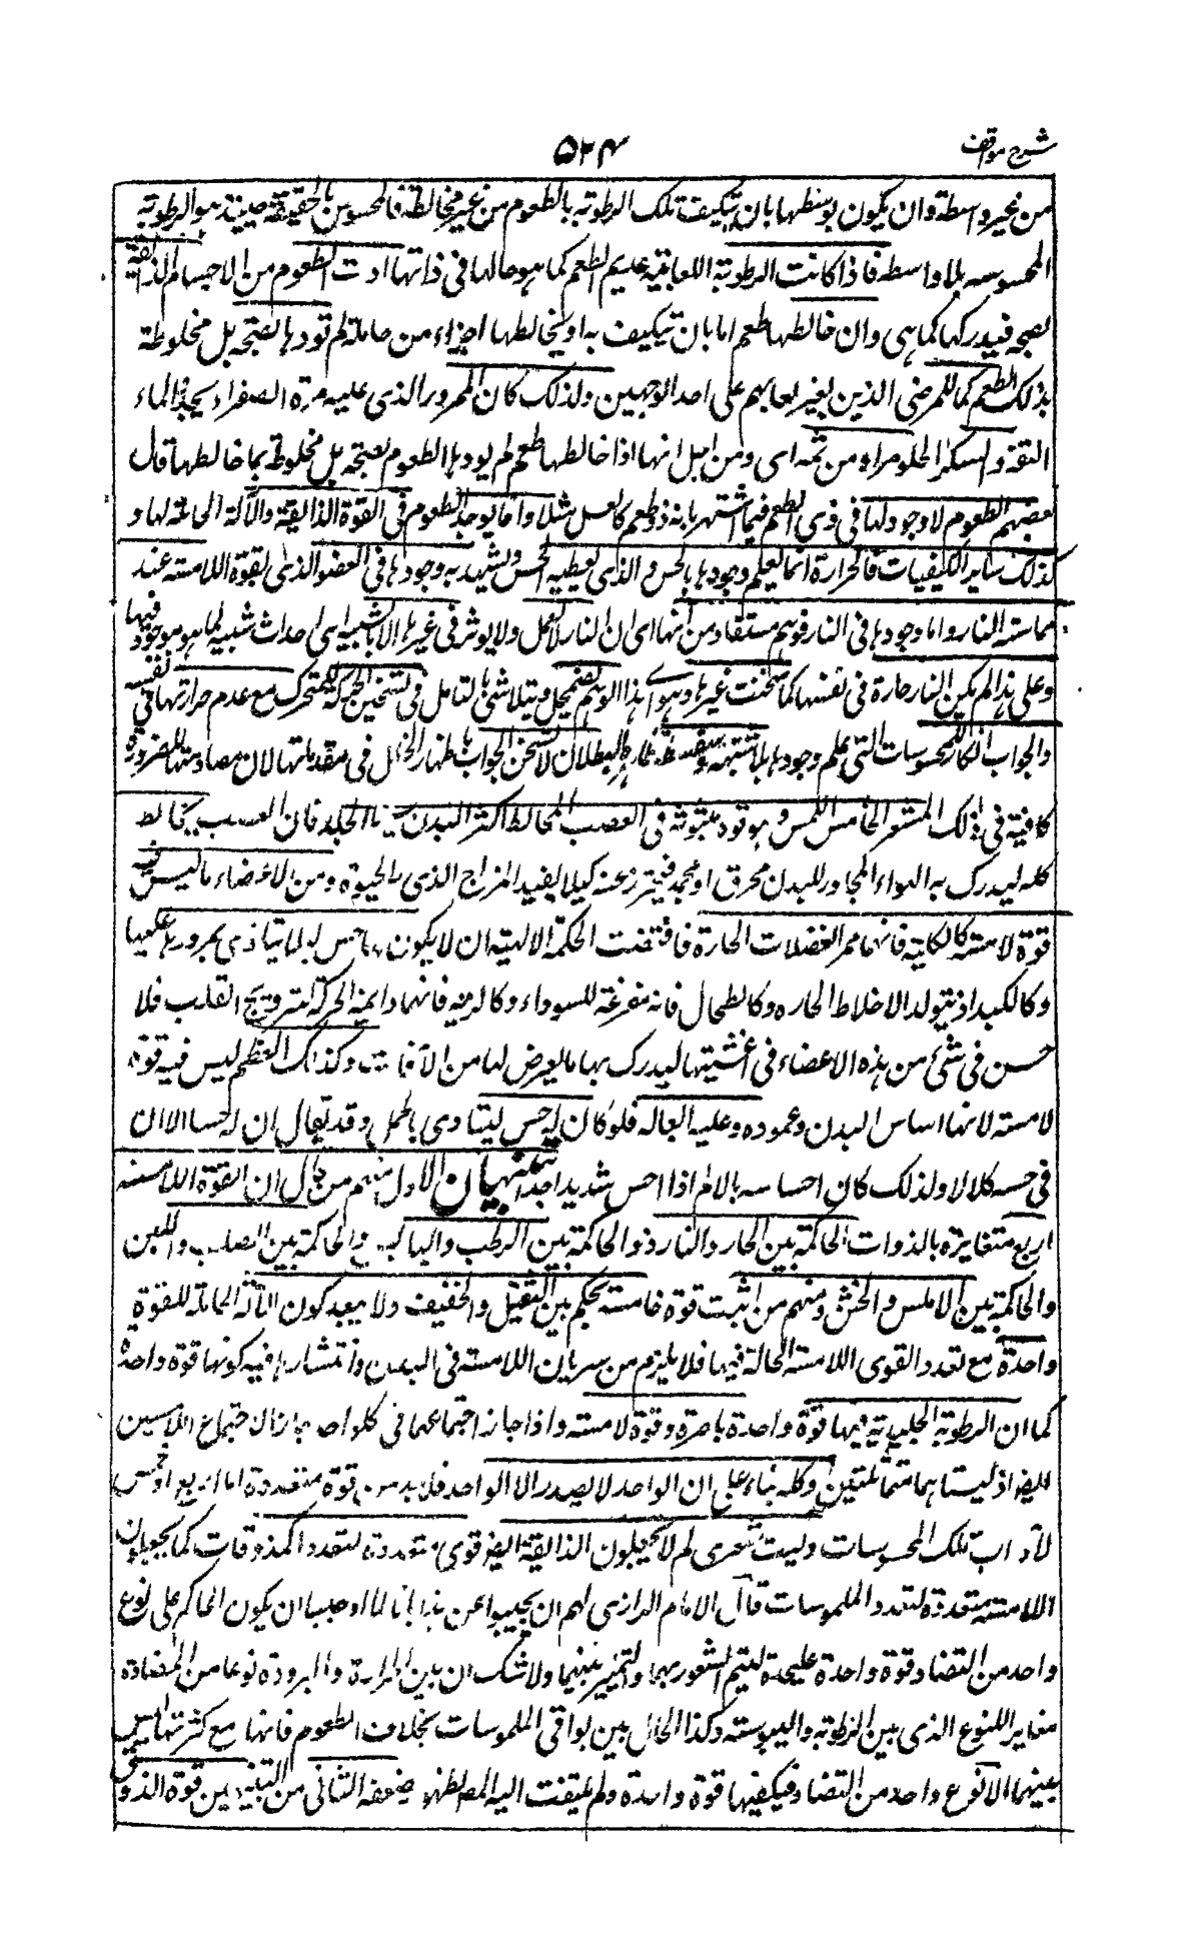 شرح مواقف
۵۲۴
من غير واسطة وان يكون بوسطها بان يتكيف تلك الرطوبة بالطعوم من غير مخالطة فالمحسوس بالحقيقة حينئذ هو الرطوبة
المحسوسه بلا واسطه فاذا كانت الرطوبة اللعابية عديم الطعم كما هو حالها فى ذاتها ادت الطعوم من الاجسام الى الذائقة
بصحه فيدركها كما هى وان خالطها طعم اما بان تتكيف به او يخالطها اجزاء من حاملة لم تودها بصحة بل مخلوطة
بذلك الطعم كما للمرضى الذين بغير لعابهم على احد الوجهين ولذلك كان الممرور الذى عليه مرة الصفراء يجد الماء
التفة والسكر الحلو مرا ومن ثمه اى ومن اجل انها اذا خالطها طعم لم يودها الطعوم بصحة بل مخلوطة بما خالطها قال
بعضهم الطعوم لا وجود لها فى ذى الطعم فيما اشتهر بانه ذو طعم كالعسل مثلا وانما يوجد الطعوم فى القوة الذائقة والآلة الحاملة لها و
كذلك ساير الكيفيات فالحرارة انما يعلم وجودها بالحس والذى يعطيه الحس ويشهد به وجودها فى العضو الذى القوة اللامسة عند
مماسة النار واما وجودها فى النار فوهم مستفاد من انها اى ان النار لا تفعل ولا يوثر فى غيرها الا بالشبيه اى احداث شبيه لما هو موجود فيها
وعلى هذا لم يكن النار حارة فى نفسها كما سخنت غيرها وهو اى هذا الوهم يضمحل ويتلاشى بالتامل فى تسخين الحركة للمتحرك مع عدم حرارتها فى نفسه
والجواب انكار المحسوسات التى علم وجودها بلا شبهة وسفسطة ظاهر البطلان لا يستحق الجواب باظهار الخلل فى مقدماتها لان مصادمتها للضرورة
كافية فى ذلك المشعر الخامس اللمس وهو قوة مبثوثة فى العصب المخالط اكثر البدن سيما الجلد فان العصب يخالط
كله ليدرك به الهواء المجاور للبدن محرق او مجمد فيتحرز عنه كيلا يفيد المزاج الذى به الحيوة ومن الاعضاء ما ليس فيه
قوة لامسة كالكلية فانها ممر الفضلات الحارة فاقتضت الحكمة الالهية ان لا يكون لها حس لئلا يتاذى بمرورها عليها
وكالكبد اذ يتولد الاخلاط الحاره وكالطحال فانه مفرغة للسوداء وكالرية فانها دايمة الحركة لترويح القلب فلا
حس فى شئ من هذه الاعضاء فى اغشيتها ليدرك بها ما يعرض لها من الآفات وكذلك العظم ليس فيه قوة
لامسة لانها اساس البدن وعموده وعليه اثقاله فلو كان له حس ليتاذى بالحمل وقد يقال ان له حسا الا ان
فى حسه كلالا ولذلك كان احساسه بالالم اذا احس شديدا جدا تنبيهان الاول منهم من قال ان القوة اللامسة
اربع متغايرة بالذوات الحاكمة بين الحار والبارد والحاكمة بين الرطب واليابس والحاكمة بين الصلب واللين
والحاكمة بين الاملس والخشن ومنهم من اثبت قوة خامسة تحكم بين الثقيل والخفيف ولا يبعد كون الآلة الحاملة للقوة
واحدة مع تعدد القوى اللامسة الحالة فيها فلا يلزم من سريان اللامسة فى البدن وانتشارها فيه كونها قوة واحدة
كما ان الرطوبة الجليدية فيها قوة واحدة باصرة وقوة لامسة واذا جاز اجتماعهما فى كل واحد جاز الاجتماع اللامستين
ايضا اذ ليستا بمتماثلتين وكله بناء على ان الواحد لا يصدر الا الواحد فلا بد من قوة متعددة اما اربع او خمس
لادراك تلك المحسوسات وليت شعرى لم لا يجعلون الذائقة ايضا قوى متعددة لتعدد المذوقات كما يجعلون
اللامسة متعددة لتعدد الملموسات قال الامام الرازى لهم ان يجيبوا عن هذا بانا لما اوجبنا ان يكون الحاكم على نوع
واحد من التضاد قوة واحدة عليحدة ليتم الشعور بهما والتميز بينهما ولا شك ان بين الحرارة والبرودة نوعا من المضادة
مغاير للنوع الذى بين الرطوبة واليبوسة وكذا الحال بين بواقى الملموسات بخلاف الطعوم فانها مع كثرتها ليس
بينهما الا نوع واحد من التضاد فيكفيها قوة واحدة ولم يلتفت اليه المص لظهور ضعفه الثانى من التنبيهين قوة الذوق